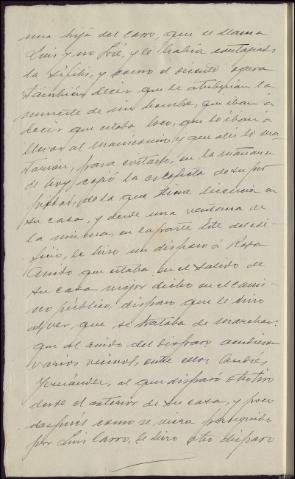 una hija del Caro, que se llama
Luis y no José, y le había contagiado
la sífilis, y como el dicente oyera
también decir que le atribuían la
muerte de un hombre, que iban á
hacer que estaba loco, que lo iban á
llevar al manicomio, y que allí lo ma-
tarían, para evitarlo, en la mañana
de hoy, cogió la escopeta de su pro-
piedad, de la que tiene licencia en
su casa, y desde una ventana de
la misma, en la parte Este del edi-
ficio, le hizo un disparo á
que estaba en el salido de
su casa mejor dicho en el cami-
no público, disparo que le hizo
al ver, que se trataba de marchar;
que al ruido del disparo acudieron
varios vecinos, entre ellos Andrés
Hernández, al que disparó otro tiro
desde el exterior de su casa, y poco
después como se viera perseguido
por Luis Caro, le hizo otro disparo